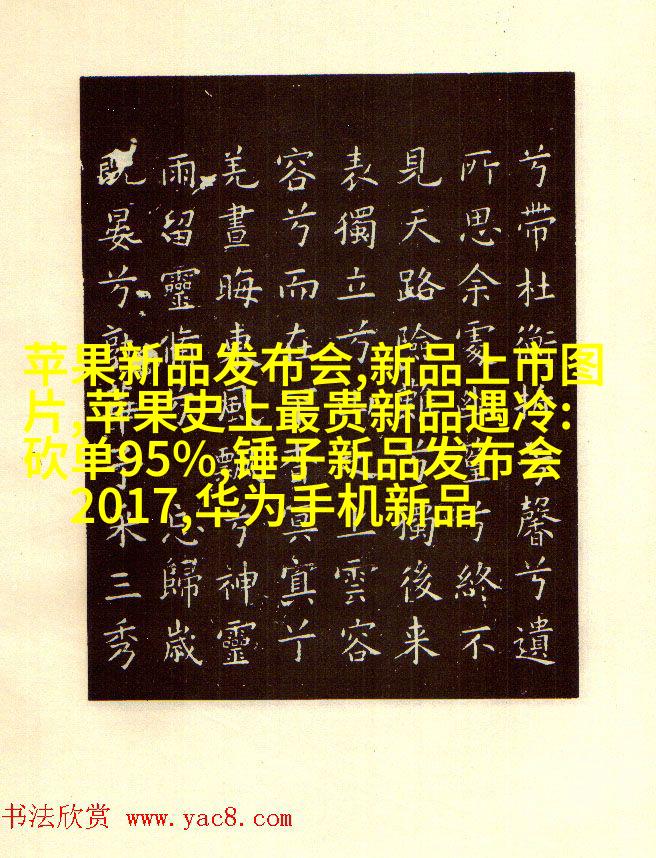 苹果新品发布会,新品上市图
片,苹果史上最贵新品遇冷:
砍单95%,锤子新品发布会
2017,华为手机新品
兮帶杜衡馨兮遺
所思余處篁兮終不
見天路險獨後来
表獨立兮上雲容
容兮而在冥寘兮
羌晝晦東風飄兮神靈
雨留靈脩忘歸歲
既晏兮孰華予采三秀
书法欣赏 www.yac8.com